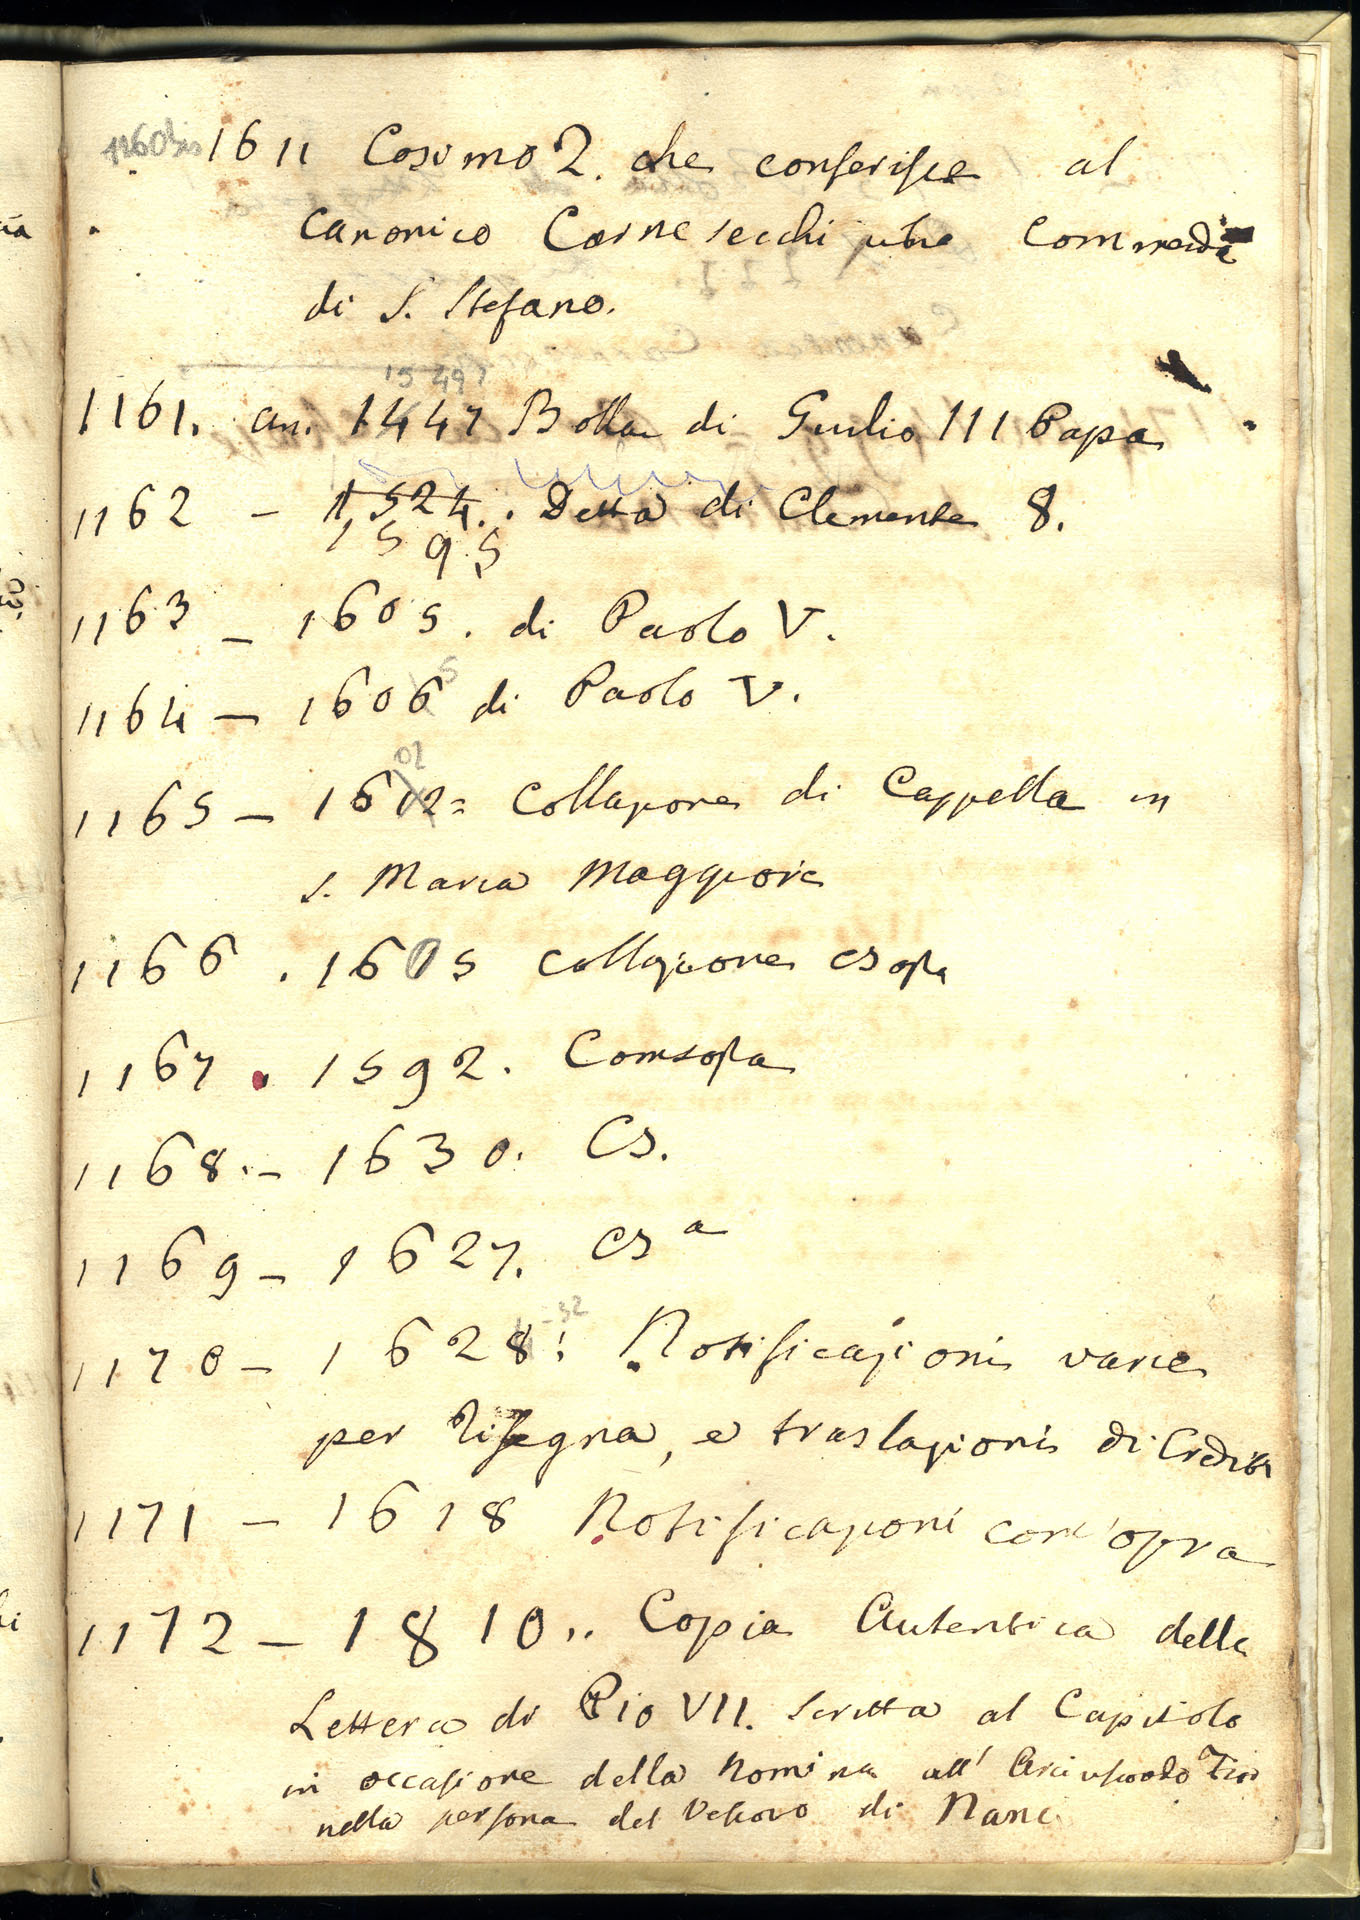 1160bis 1611 Cosimo 2. che conferisce al
canonico Carnesecchi una Commenda
di S. Stefano.
15 49?
1161. an. 1447 Bolla di Giulio III Papa
1162 - 1524.. Detta di Clemente 8.
1595
1163 - 1605. di Paolo V.
5
1164 - 1606 di Paolo V.
02
1165 - 1612= Collazione di Cappella in
S. Maria Maggiore
1166 . 1605 collazione csopa
1167 . 1592. Comsopa
1168.- 1630. CS.
1169 - 1627. CSa
-32
1170 - 1628: Notificazioni varie
per Risegna, e traslazioni di Crediti
1171 - 1618 Notificazioni com'opra
1172 - 1810.. Copia Autentica della
Lettera di Pio VII. scritta al Capitolo
in occasione della Nomina all' Arcivescovado Fior
nella persona del Vescovo di Nanci